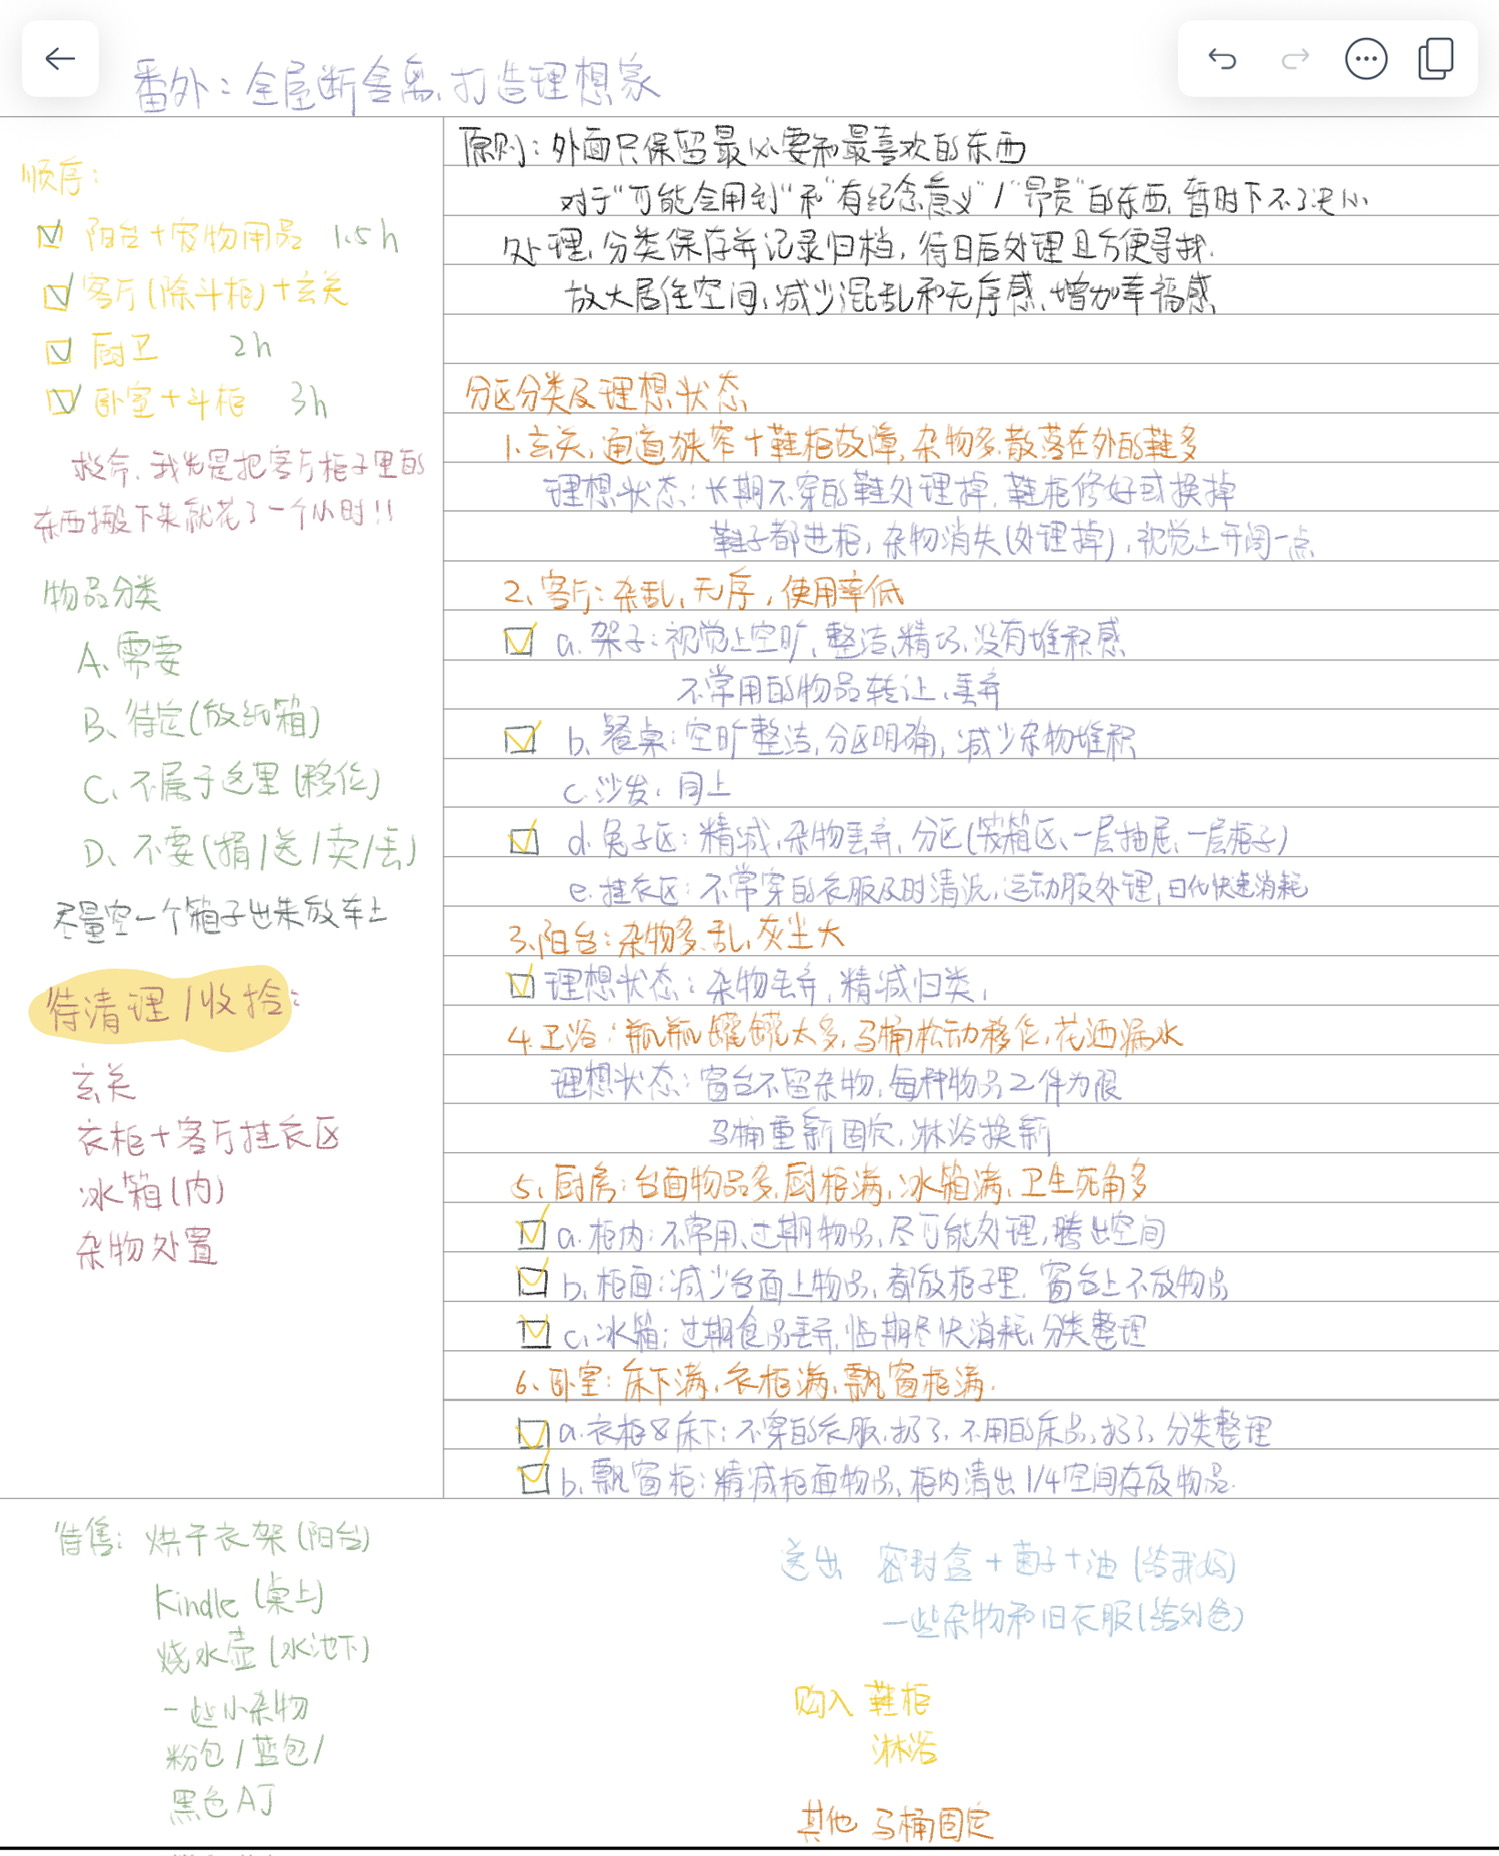 番外：全屋断舍离，打造理想家
顺序：
阳台+宠物用品 1.5h
客厅(除斗柜)+玄关
厨卫 2h
卧室+斗柜 3h
救命，我光是把客厅柜子里的
东西搬下来就花了一个小时!!
物品分类
A、需要
B、待定(放纸箱)
C、不属于这里(移位)
D、不要(捐/送/卖/丢)
尽量空一个箱子出来放车上
待清理/收拾：
玄关
衣柜+客厅挂衣区
冰箱(内)
杂物处置
原则：外面只保留最必要和最喜欢的东西
对于"可能会用到"和"有纪念意义"/"昂贵"的东西，暂时下不了决心
处理，分类保存并记录归档，待日后处理且方便寻找.
放大居住空间，减少混乱和无序感，增加幸福感
分区分类及理想状态
1.玄关，通道狭窄+鞋柜故障，杂物多，散落在外的鞋多
理想状态：长期不穿的鞋处理掉，鞋柜修好或换掉
鞋子都进柜，杂物消失(处理掉)，视觉上开阔一点
2、客厅：杂乱，无序，使用率低
a.架子：视觉上空旷，整洁，精巧，没有堆积感
不常用的物品转让、丢弃
b、餐桌：空旷整洁，分区明确，减少杂物堆积
c.沙发：同上
d.兔子区：精减，杂物丢弃，分区(装箱区、一层抽屉、一层柜子)
e.挂衣区：不常穿的衣服及时清洗，运动服处理，日化快速消耗
3.阳台：杂物多，乱，灰尘大
理想状态：杂物丢弃，精减归类，
4.卫浴：瓶瓶罐罐太多，马桶松动移位，花洒漏水
理想状态：窗台不留杂物，每种物品2件为限
马桶重新固定，淋浴换新
5、厨房：台面物品多，厨柜满，冰箱满，卫生死角多
a.柜内：不常用、过期物品，尽可能处理，腾出空间
b.柜面：减少台面上物品，都放柜子里，窗台上不放物品
c.冰箱：过期食品丢弃，临期尽快消耗，分类整理
6、卧室：床下满，衣柜满，飘窗柜满.
a.衣柜&床下：不穿的衣服，扔了，不用的床品，扔了，分类整理
b、飘窗柜：精减柜面物品，柜内清出1/4空间存放物品.
待售：烘干衣架(阳台)
Kindle (桌上)
烧水壶(水池下)
一些小杂物
粉包/蓝包/
黑色AJ
送出 密封盒+菌子+油(给我妈)
一些杂物和旧衣服(给刘爸)
购入 鞋柜
淋浴
其他 马桶固定